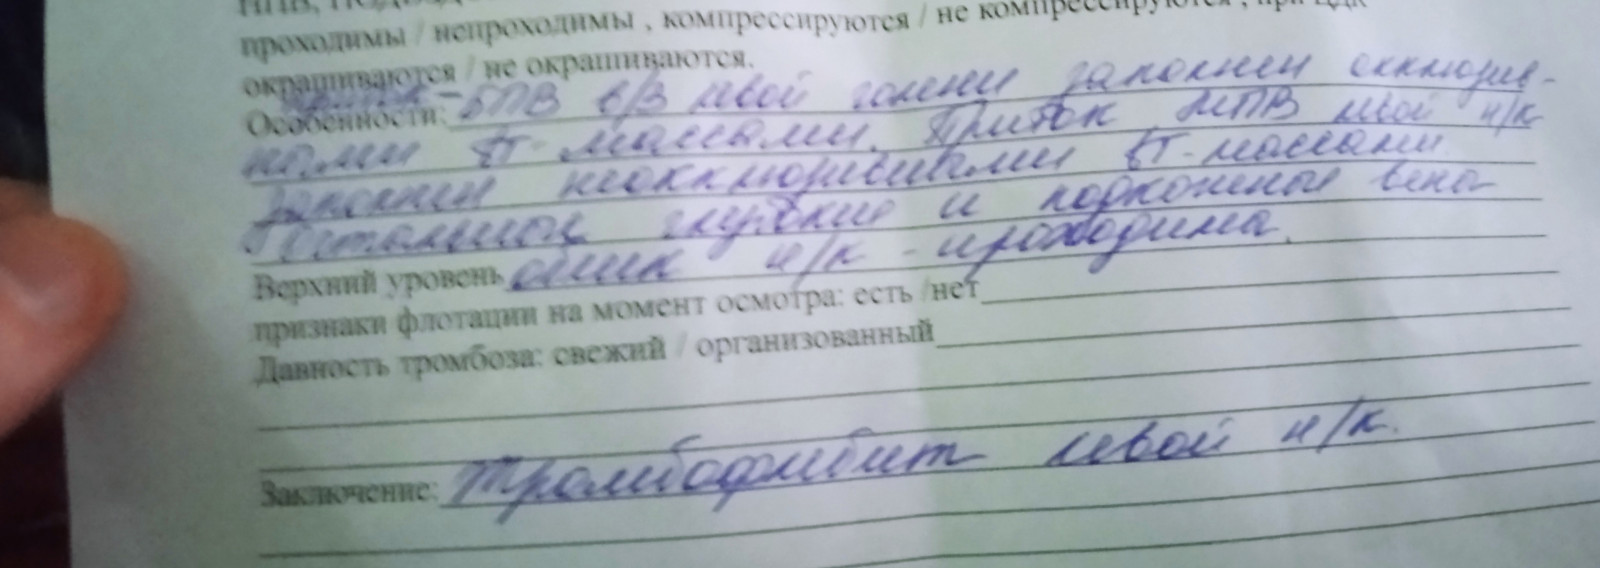 проходимы / непроходимы , компрессируются / не компрессируются , при ЦДК
окрашиваются / не окрашиваются.
Особенности: приток - БПВ в/3 левой голени заполнен окклюзив-
ными тр- массами. Приток МПВ левой н/к
заполнен неокклюзивными тр-массами.
Остальные глубокие и подкожные вены
Верхний уровень обеих н/к - проходимы.
признаки флотации на момент осмотра: есть /нет
Давность тромбоза: свежий / организованный
Заключение: Тромбофлебит левой н/к.